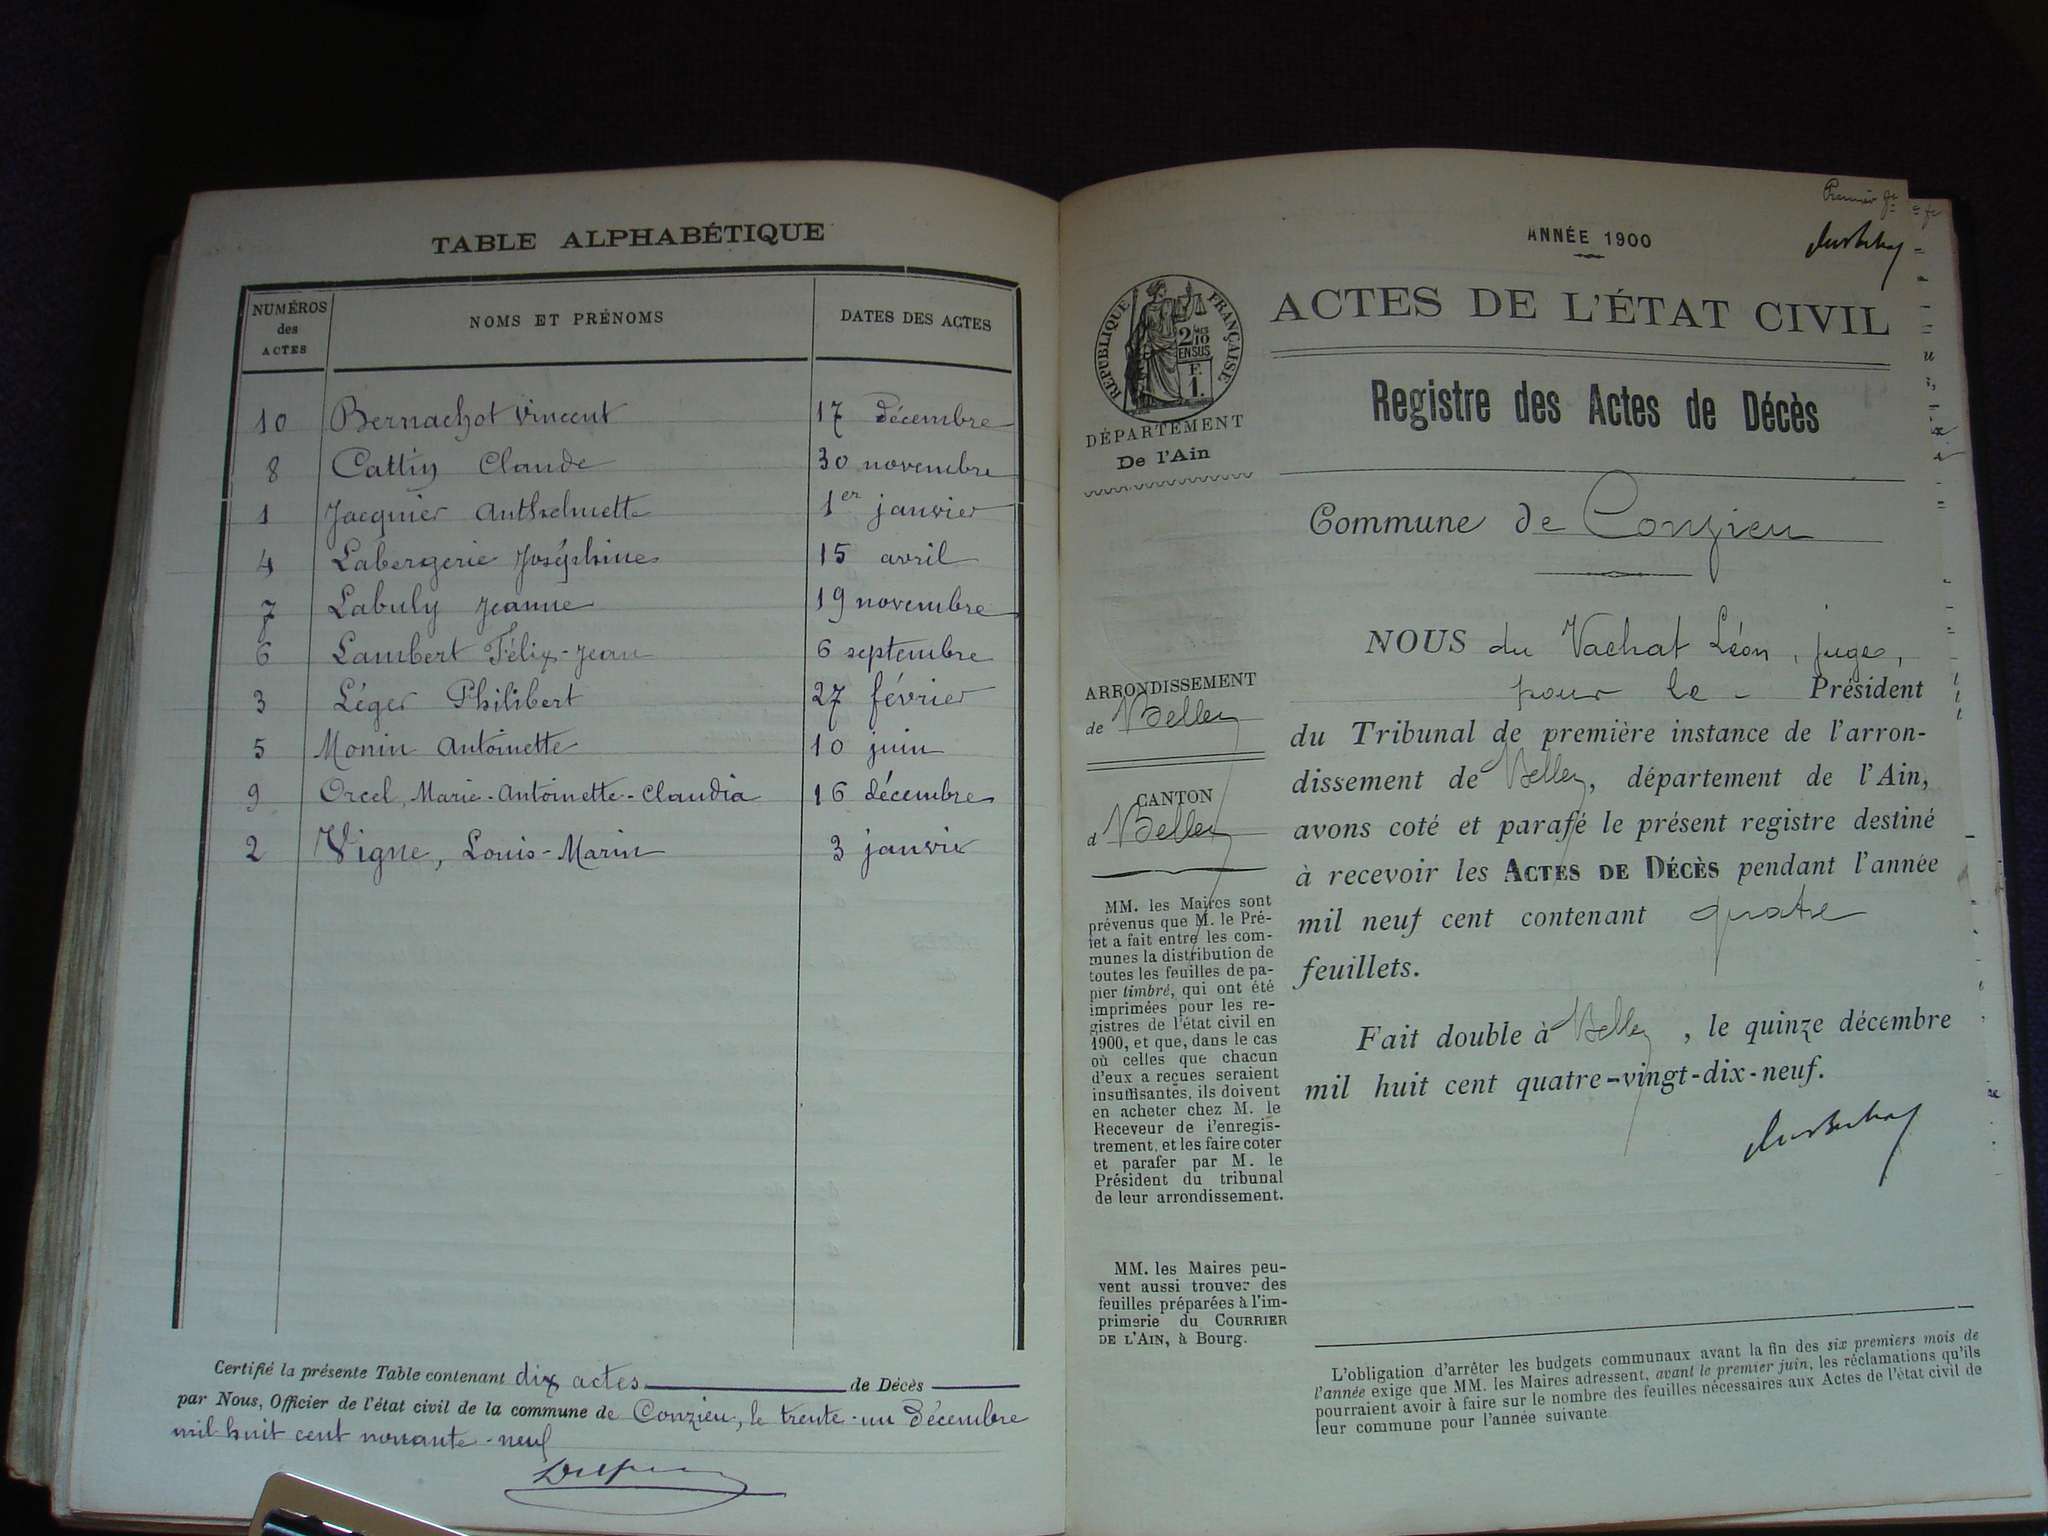 TABLE ALPHABÉTIQUE
NUMÉROS des ACTES NOMS ET PRÉNOMS DATES DES ACTES
10 Bernachot Vincent 17 décembre
8 Cattin Claude 30 novembre
1 Jacquier Anthelmette 1er janvier
4 Labergerie Joséphine 15 avril
7 Labuly Jeanne 19 novembre
6 Lambert Félix-Jean 6 septembre
3 Léger Philibert 27 février
5 Monin Antoinette 10 juin
9 Orcel, Marie-Antoinette-Claudia 16 décembre
2 Vigne, Louis-Marin 3 janvier
Certifié la présente Table contenant dix actes de Décès
par Nous, Officier de l'état civil de la commune de Conzieu, le trente-un décembre
mil huit cent nonante-neuf
Premier
ANNÉE 1900
RÉPUBLIQUE FRANÇAISE
2/10
EN SUS
F.
1.
DÉPARTEMENT
De l'Ain
ACTES DE L'ÉTAT CIVIL
Registre des Actes de Décès
Commune de Conzieu
ARRONDISSEMENT
de Belley
CANTON
d Belley
MM. les Maires sont
prévenus que M. le Pré-
fet a fait entre les com-
munes la distribution de
toutes les feuilles de pa-
pier timbré, qui ont été
imprimées pour les re-
gistres de l'état civil en
1900, et que, dans le cas
où celles que chacun
d'eux a reçues seraient
insuffisantes, ils doivent
en acheter chez M. le
Receveur de l'enregis-
trement, et les faire coter
et parafer par M. le
Président du tribunal
de leur arrondissement.
MM. les Maires peu-
vent aussi trouver des
feuilles préparées à l'im-
primerie du COURRIER
DE L'AIN, à Bourg.
NOUS du Vachat Léon, juge,
pour le - Président
du Tribunal de première instance de l'arron-
dissement de Belley, département de l'Ain,
avons coté et parafé le présent registre destiné
à recevoir les ACTES DE DÉCÈS pendant l'année
mil neuf cent contenant quatre
feuillets.
Fait double à Belley, le quinze décembre
mil huit cent quatre-vingt-dix-neuf.
L'obligation d'arrêter les budgets communaux avant la fin des six premiers mois de
l'année exige que MM. les Maires adressent, avant le premier juin, les réclamations qu'ils
pourraient avoir à faire sur le nombre des feuilles nécessaires aux Actes de l'état civil de
leur commune pour l'année suivante